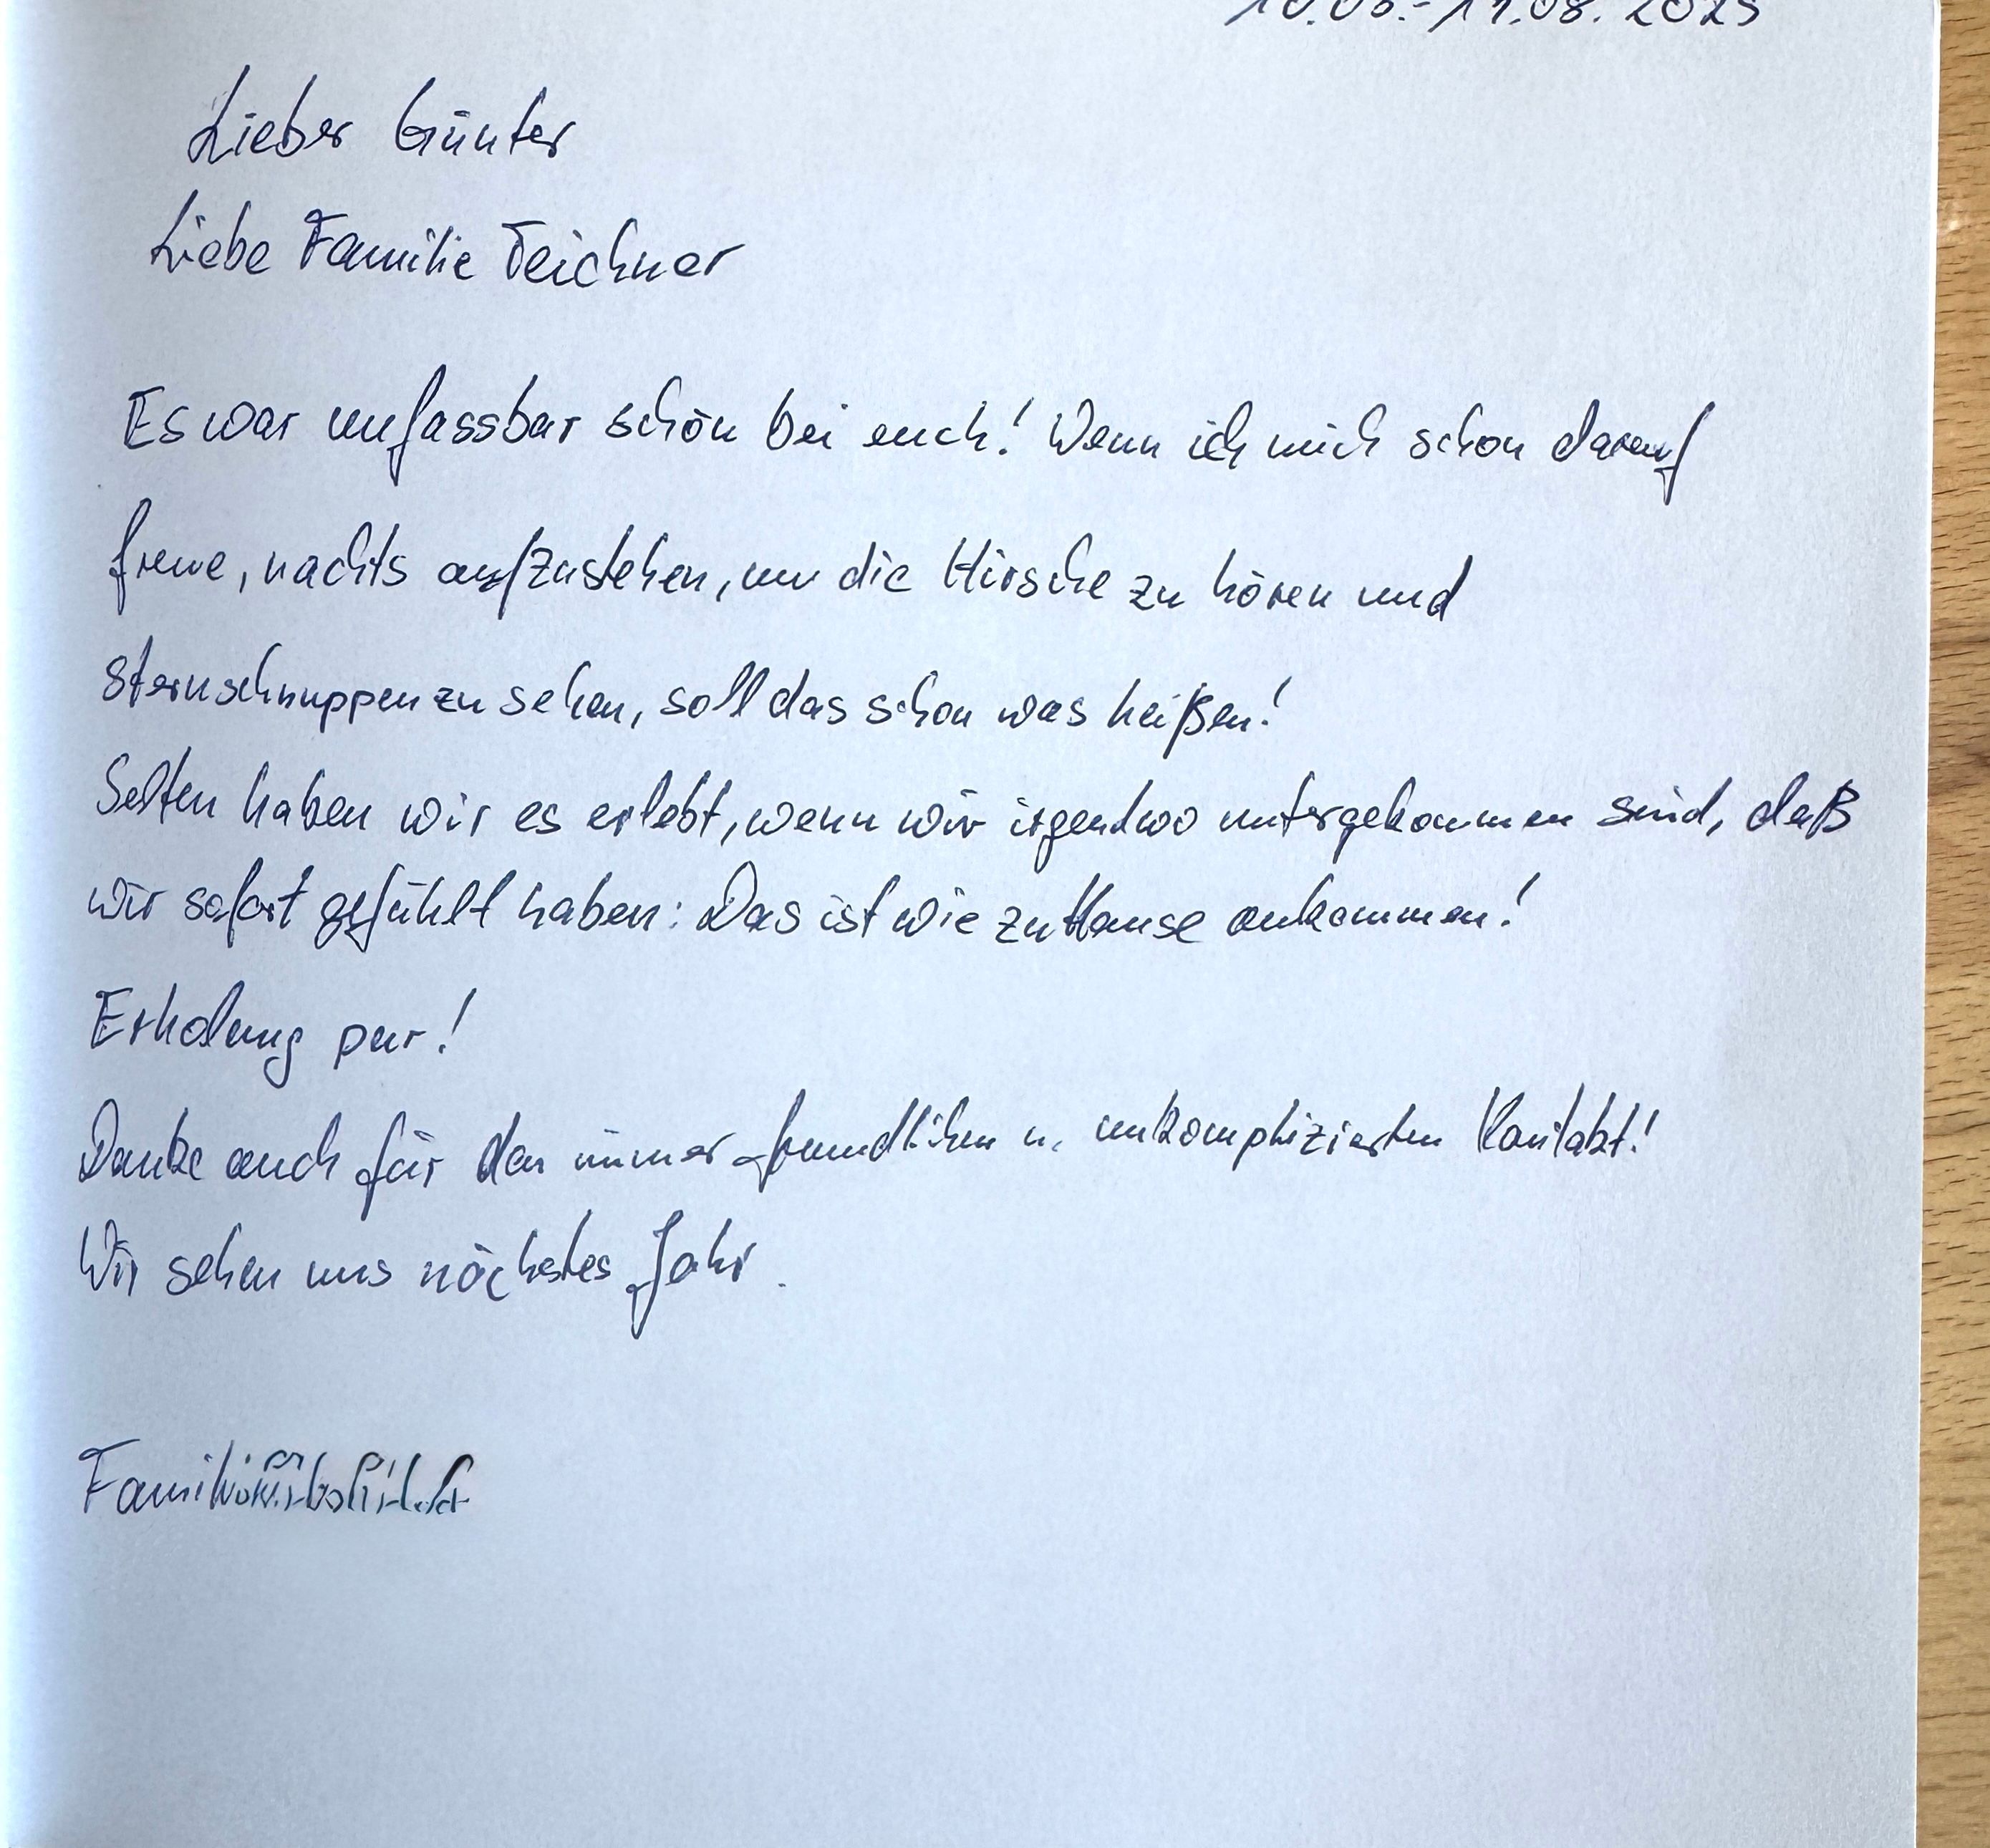 2025
Lieber Günter
Liebe Familie Teichner
Es war unfassbar schön bei euch! Wenn ich mich schon darauf
freue, nachts aufzustehen, um die Hirsche zu hören und
Sternschnuppen zu sehen, soll das schon was heißen!
Selten haben wir es erlebt, wenn wir irgendwo untergekommen sind, daß
wir sofort gefühlt haben: Das ist wie zu Hause ankommen!
Erholung pur!
Danke auch für den immer freundlichen u. unkomplizierten Kontakt!
Wir sehen uns nächstes Jahr.
Familie